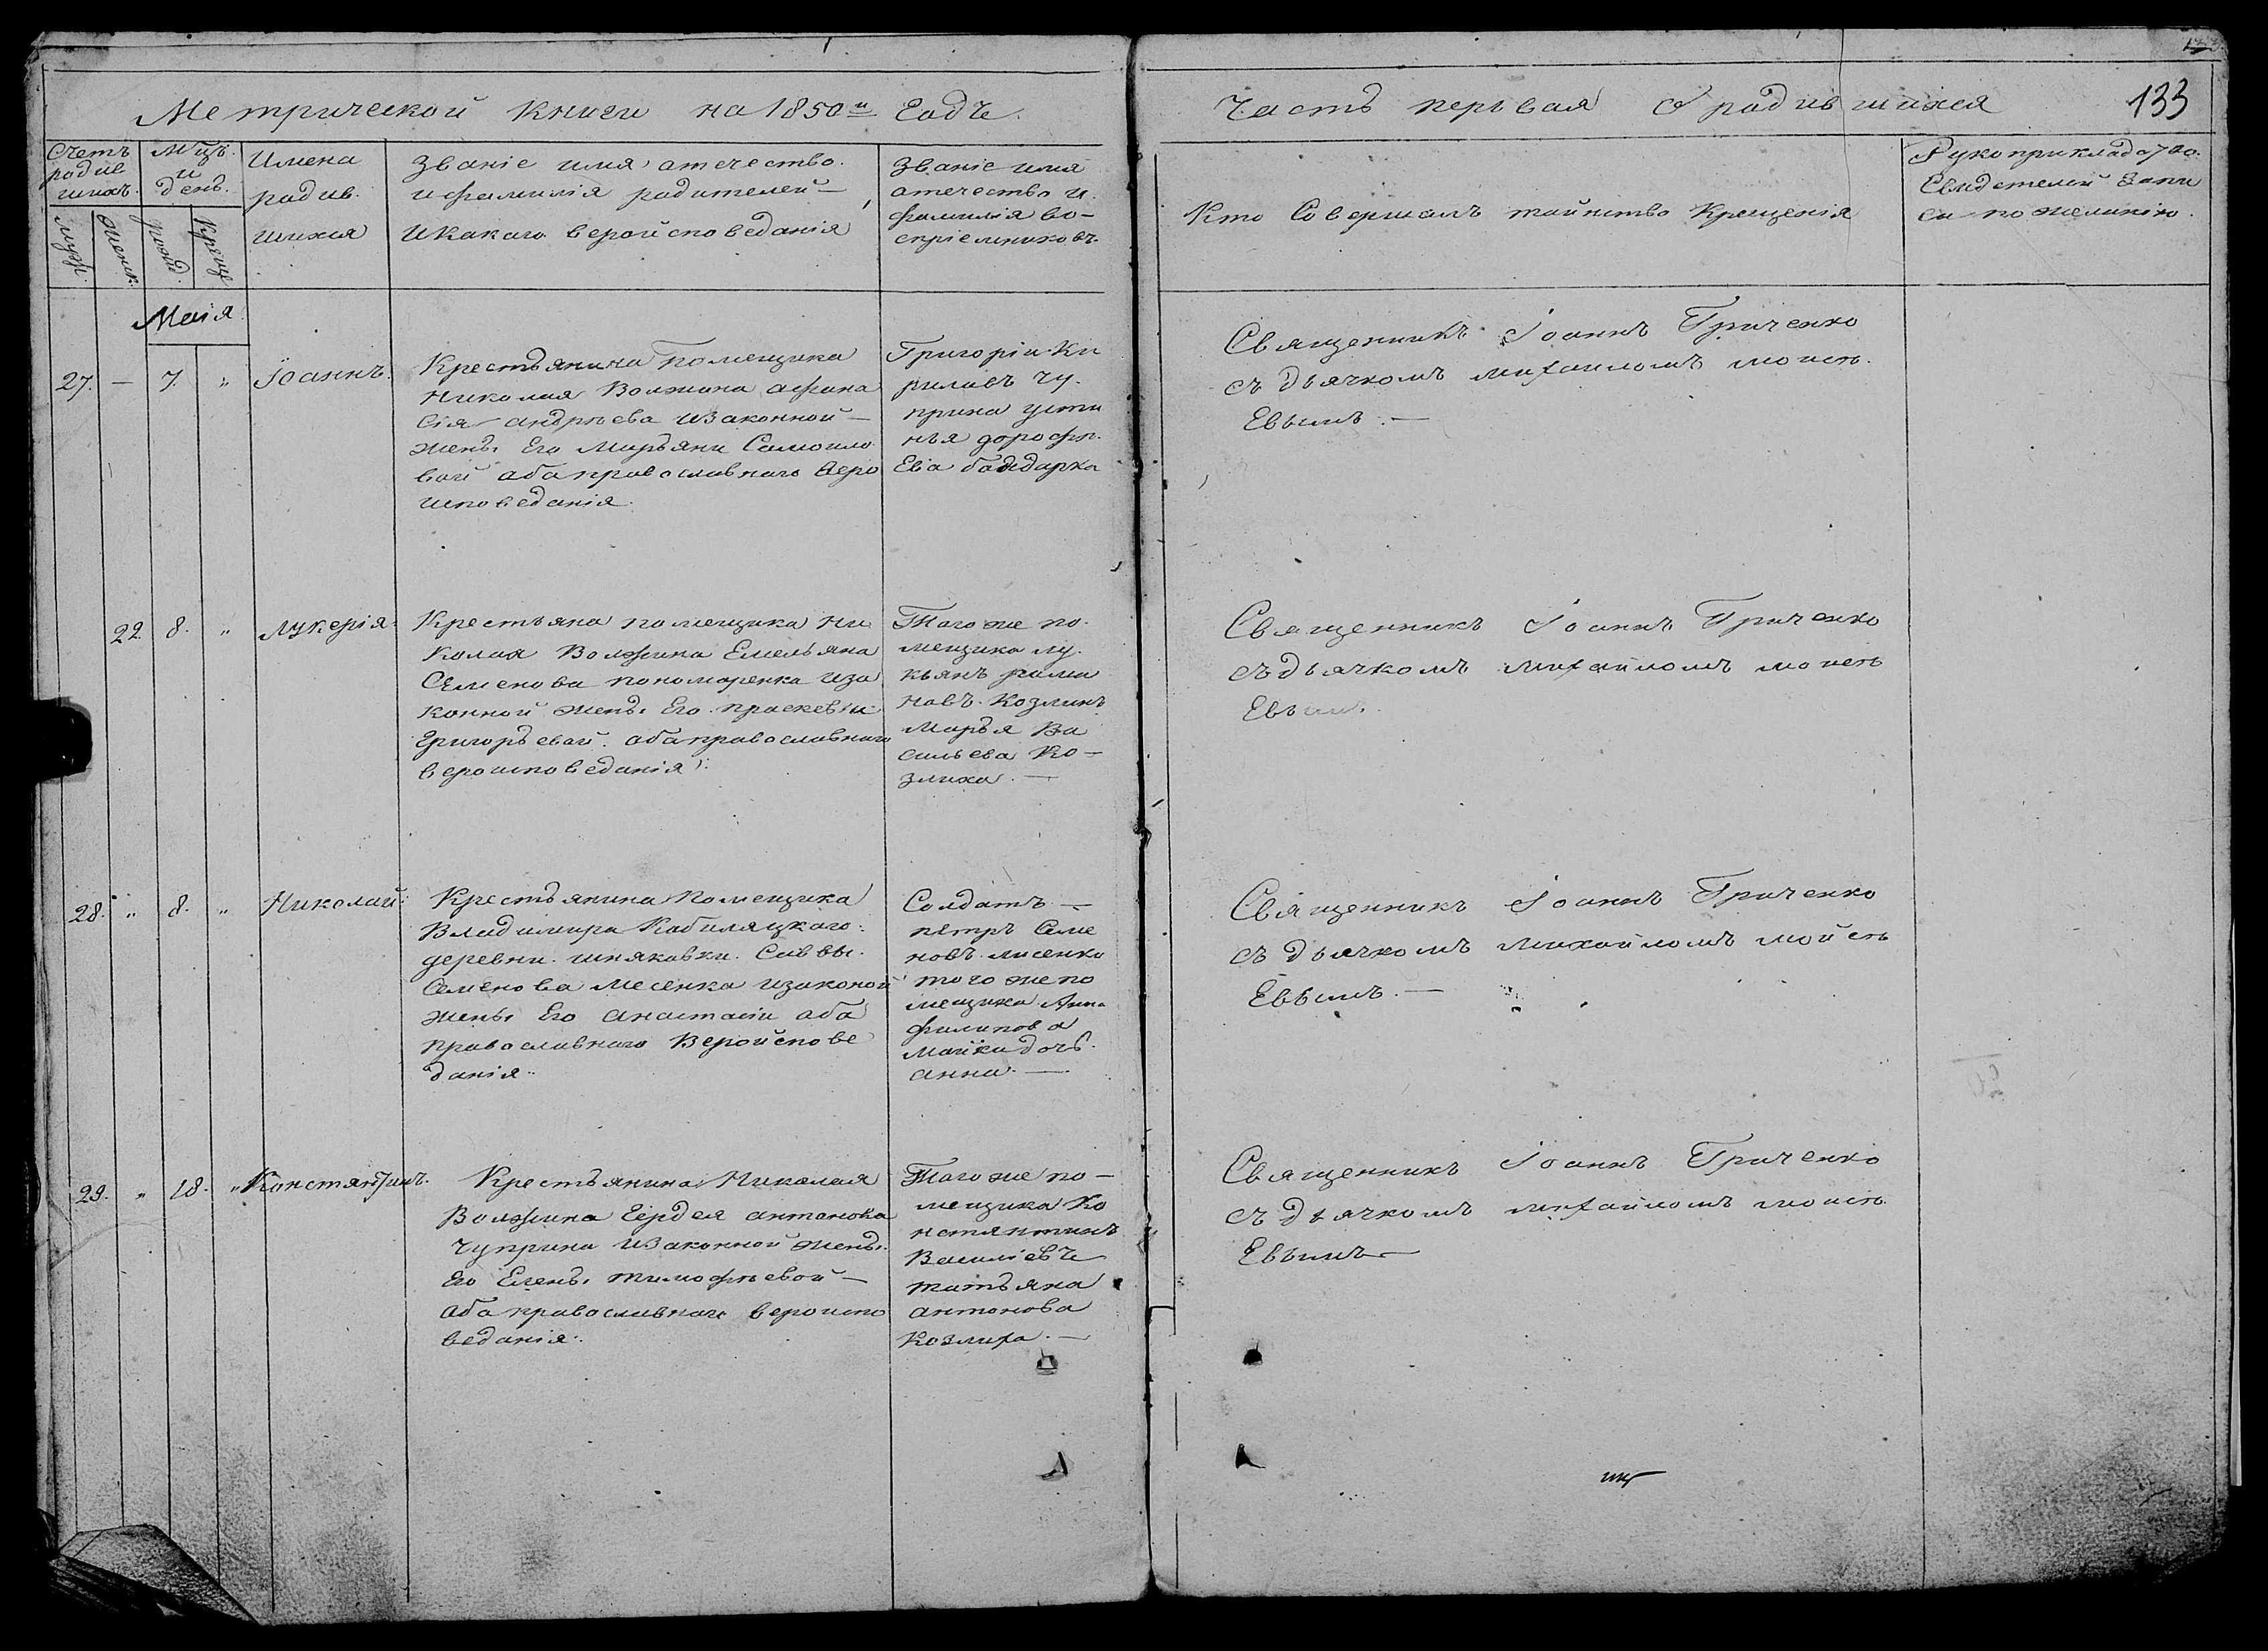 Метрической книги на 1850й Годъ.
Часть первая О родившихся
133
Счетъ родив шихъ.
Мцъ. и день.
Имена родив. шихся
Званіе имя, отечество.
и фамилія родителей —
И какаго веройсповеданія
Званіе имя
отечество и
фамилія во-
спріемниковъ.
Кто Совершалъ таинство Крещенія
Рукоприкладство.
Свидетелей Запи
си по желанію.
муж.
женск.
рожд.
Креще
Маія
27. — 7. " Іоаннъ.
Крестьянина Помещика
Николая Волжина Афана
сія Андрѣева Изаконной —
жены Его Марьяни Самоило
вой оба православнаго веро
исповеданія.
Григорій Ки
риловъ Чу.
прина Усти
нья дорофѣ.
Ева
Священникъ Іоаннъ Гриченко
съ дьячкомъ михаиломъ моисѣ.
Евымъ. —
22. 8. " Лукерія.
Крестьяна помещика Ни
колая Волжина Емельяна
Семенова пономаренка иза
конной жены Его праскевы
Григорьевой. оба православнаго
вероисповеданія.
Тогоже по.
мещика Лу.
кьянъ рома
новъ. Козминъ
Марья Ва
сильева Ко —
злиха. —
Священникъ Іоаннъ Гриченко
съ дьячкомъ михайломъ моисѣ
Евымъ.
28. " 8. " Николай:
Крестьянина Помещика
Владимира Кобиляцкаго:
деревни. шпаковки. Саввы.
Семенова Лесенка изаконой
жены Его Анастасіи оба
Православнаго Веройспове
данія.
Солдатъ —
пѣтръ Семе
новъ. лисенко
тогоже по
мещика Анна
филипова
дочь.
Анна. —
Священникъ Іоаннъ Гриченко
съ дьячкомъ Михайломъ мойсѣ
Евымъ. —
29. " 18. " Константинъ.
Крестьянина Николая
Волжина Гордея антонова
Чуприна Изаконной жены.
Его Елены тимофѣевой —
Оба православнаго вероиспо
веданія.
Тогоже по —
мещика Ко
нстянтинъ
Василіевъ
татьяна
антонова
Козлиха. —
Священникъ Іоаннъ Гриченко
съ дьячкомъ михайломъ моисѣ.
Евымъ —